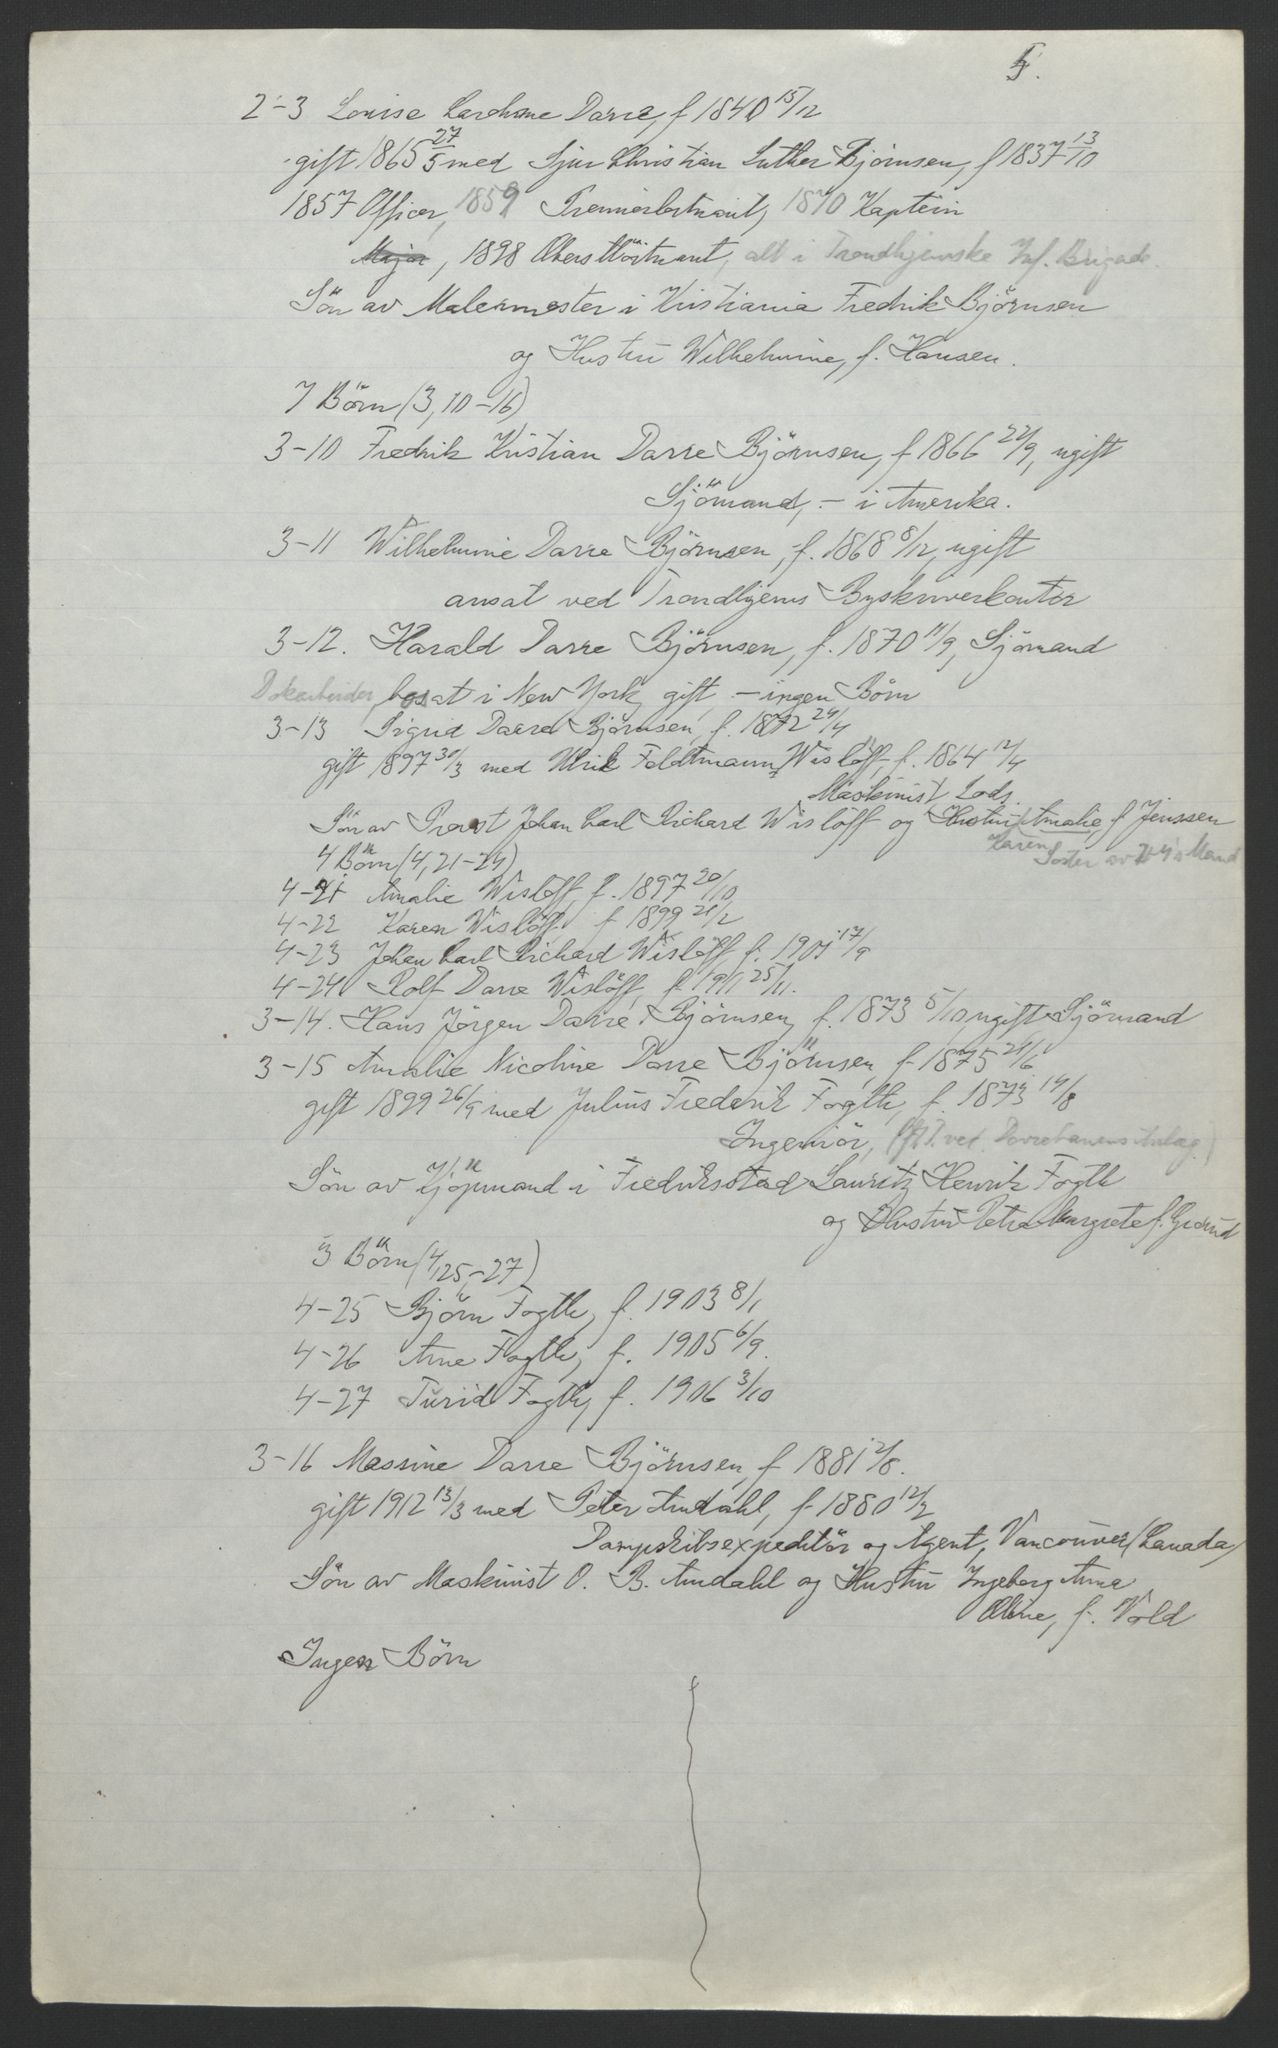 5.
2-3 Louise Caroline Darre, f 1840 15/12
gift 1865 27/5 med Sjur Christian Luther Björnsen, f 1837 13/10
1857 Officer, 1859 Premierløitnant, 1870 Kaptein
Major, 1898 Oberstlöitnant, alt i Trondhjemske Inf. Brigade.
Sön av Malermester i Kristiania Fredrik Björnsen
og Hustru Wilhelmine, f. Hansen.
7 Börn (3, 10-16)
3-10 Fredrik Kristian Darre Björnsen, f 1866 22/9, ugift
Sjömand, - i Amerika.
3-11 Wilhelmine Darre Björnsen, f. 1868 8/12, ugift
ansat ved Trondhjems Byskriverkontor
3-12. Harald Darre Björnsen, f. 1870 11/9, Sjömand
Dokarbeider, bosat i New York, gift - ingen Börn
3-13 Sigrid Darre Björnsen, f. 1872 24/4
gift 1897 30/3 med Ulrik Feldtmann Wislöff, f. 1864 12/4
Maskinist Lods
Sön av Provst Johan Carl Richard Wislöff og Hustru Amalie, f Jenssen
Karen Søster av Mand
4 Börn (4, 21-24)
4-21 Amalie Wislöff, f. 1897 20/10
4-22 Karen Wislöff f 1899 21/2
4-23 Johan Carl Richard Wislöff f. 1901 17/9
4-24 Rolf Darre Wislöff, f. 1911 25/11.
3-14. Hans Jörgen Darre Björnsen, f. 1873 5/10 ugift Sjömand
3-15 Amalie Nicoline Darre Björnsen, f 1875 24/6
gift 1899 26/9 med Julius Frederik Fogth, f. 1873 14/8
Ingeniör, (f.T. ved Dovrebanens Anlæg.)
Sön av Kjöpmand i Fredriksstad Lauritz Henrik Fogth
og Hustru Petra Margrete f.
3 Börn (4, 25-27)
4-25 Björn Fogth, f. 1903 8/1
4-26 Arne Fogth, f. 1905 6/9.
4-27 Turid Fogth, f. 1906 3/10
3-16 Massine Darre Björnsen, f 1881 2/8.
gift 1912 13/3 med Peter Amdahl, f 1880 12/2
Dampskibsexpeditör og Agent, Vancouver (Canada)
Sön av Maskinist O. B. Amdahl og Hustru Ingeborg Anna
Oline, f. Vold
Ingen Börn